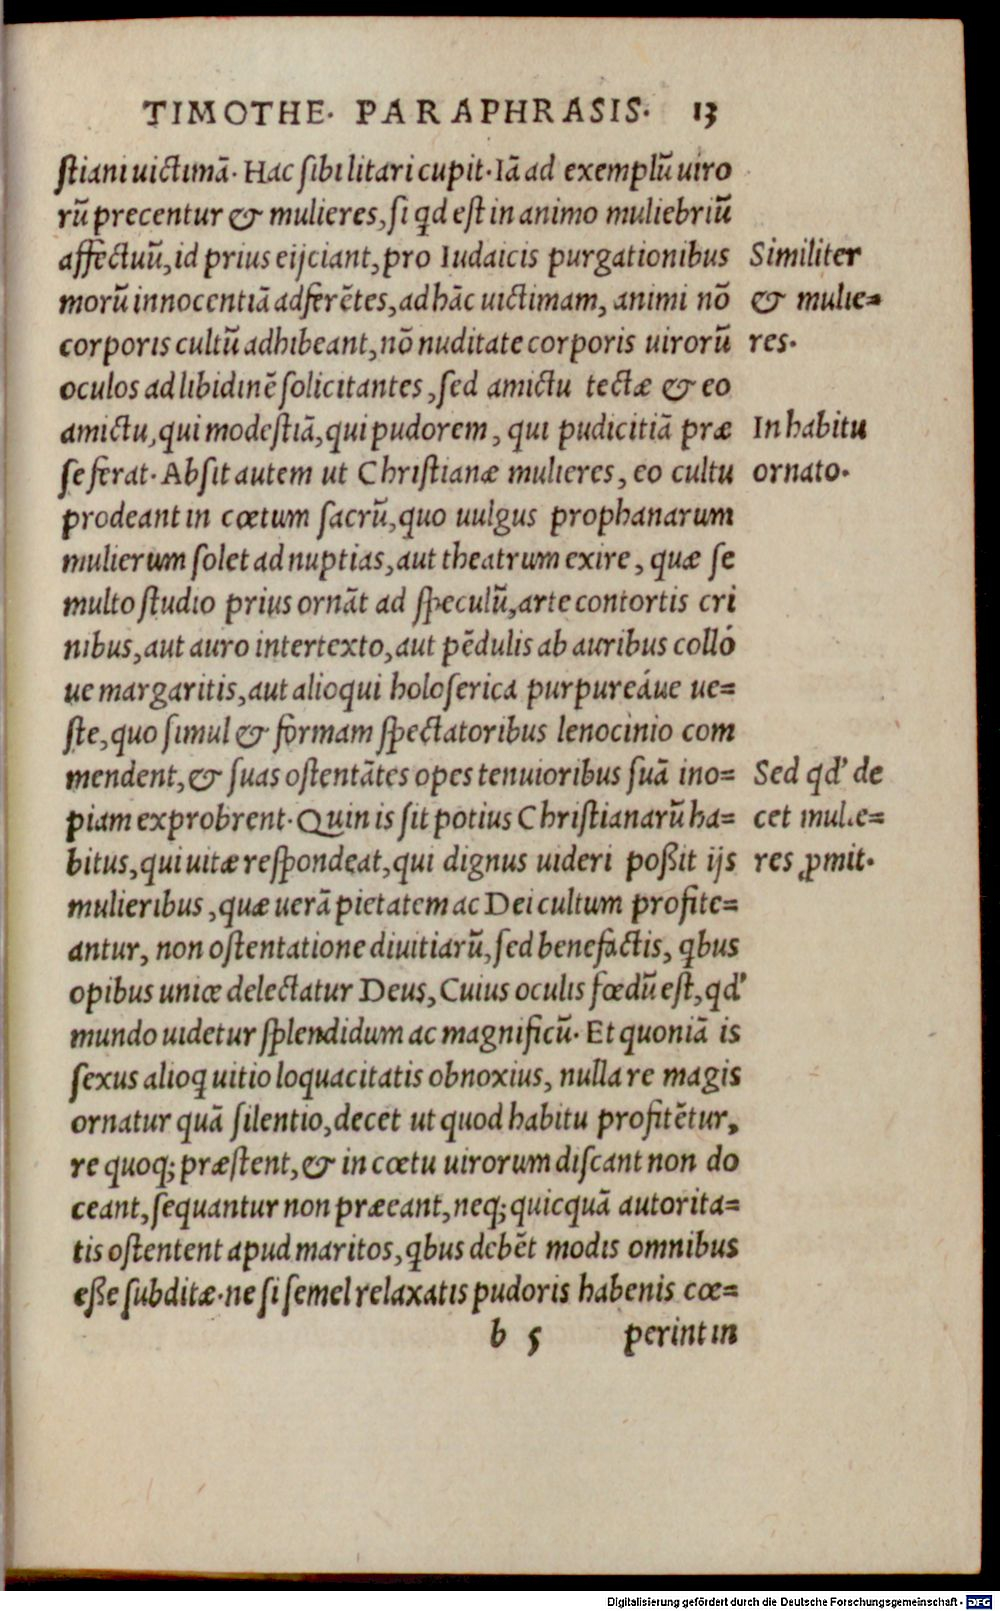 TIMOTHE. PARAPHRASIS. 13
ſtiani uictimā. Hac ſibi litari cupit. Iā ad exemplū uiro
rū precentur & mulieres, ſi qd eſt in animo muliebriū
affectuū, id prius eijciant, pro Iudaicis purgationibus
morū innocentiā adferētes, ad hāc uictimam, animi nō
corporis cultū adhibeant, nō nuditate corporis uirorū
oculos ad libidinē ſolicitantes, ſed amictu tectæ & eo
amictu, qui modeſtiā, qui pudorem, qui pudicitiā præ
ſe ferat. Abſit autem ut Chriſtianæ mulieres, eo cultu
prodeant in cœtum ſacrū, quo uulgus prophanarum
mulierum ſolet ad nuptias, aut theatrum exire, quæ ſe
multo ſtudio prius ornāt ad ſpeculū, arte contortis cri
nibus, aut auro intertexto, aut pēdulis ab auribus colló
ue margaritis, aut alioqui holoſerica purpureáue ue=
ſte, quo ſimul & formam ſpectatoribus lenocinio com
mendent, & ſuas oſtentātes opes tenuioribus ſuā ino=
piam exprobrent. Quin is ſit potius Chriſtianarū ha=
bitus, qui uitæ reſpondeat, qui dignus uideri poßit ijs
mulieribus, quæ uerā pietatem ac Dei cultum profite=
antur, non oſtentatione diuitiarū, ſed benefactis, qbus
opibus unice delectatur Deus, Cuius oculis fœdū eſt, qd'
mundo uidetur ſplendidum ac magnificū. Et quoniā is
ſexus alioq uitio loquacitatis obnoxius, nulla re magis
ornatur quā ſilentio, decet ut quod habitu profitētur,
re quoq; præſtent, & in cœtu uirorum diſcant non do
ceant, ſequantur non præeant, neq; quicquā autorita=
tis oſtentent apud maritos, qbus debēt modis omnibus
eße ſubditæ. ne ſi ſemel relaxatis pudoris habenis cœ=
b 5 perint in
Similiter
& mulie=
res.
In habitu
ornato.
Sed qd' de
cet mulie=
res ꝓmit.
Digitalisierung gefördert durch die Deutsche Forschungsgemeinschaft - DFG